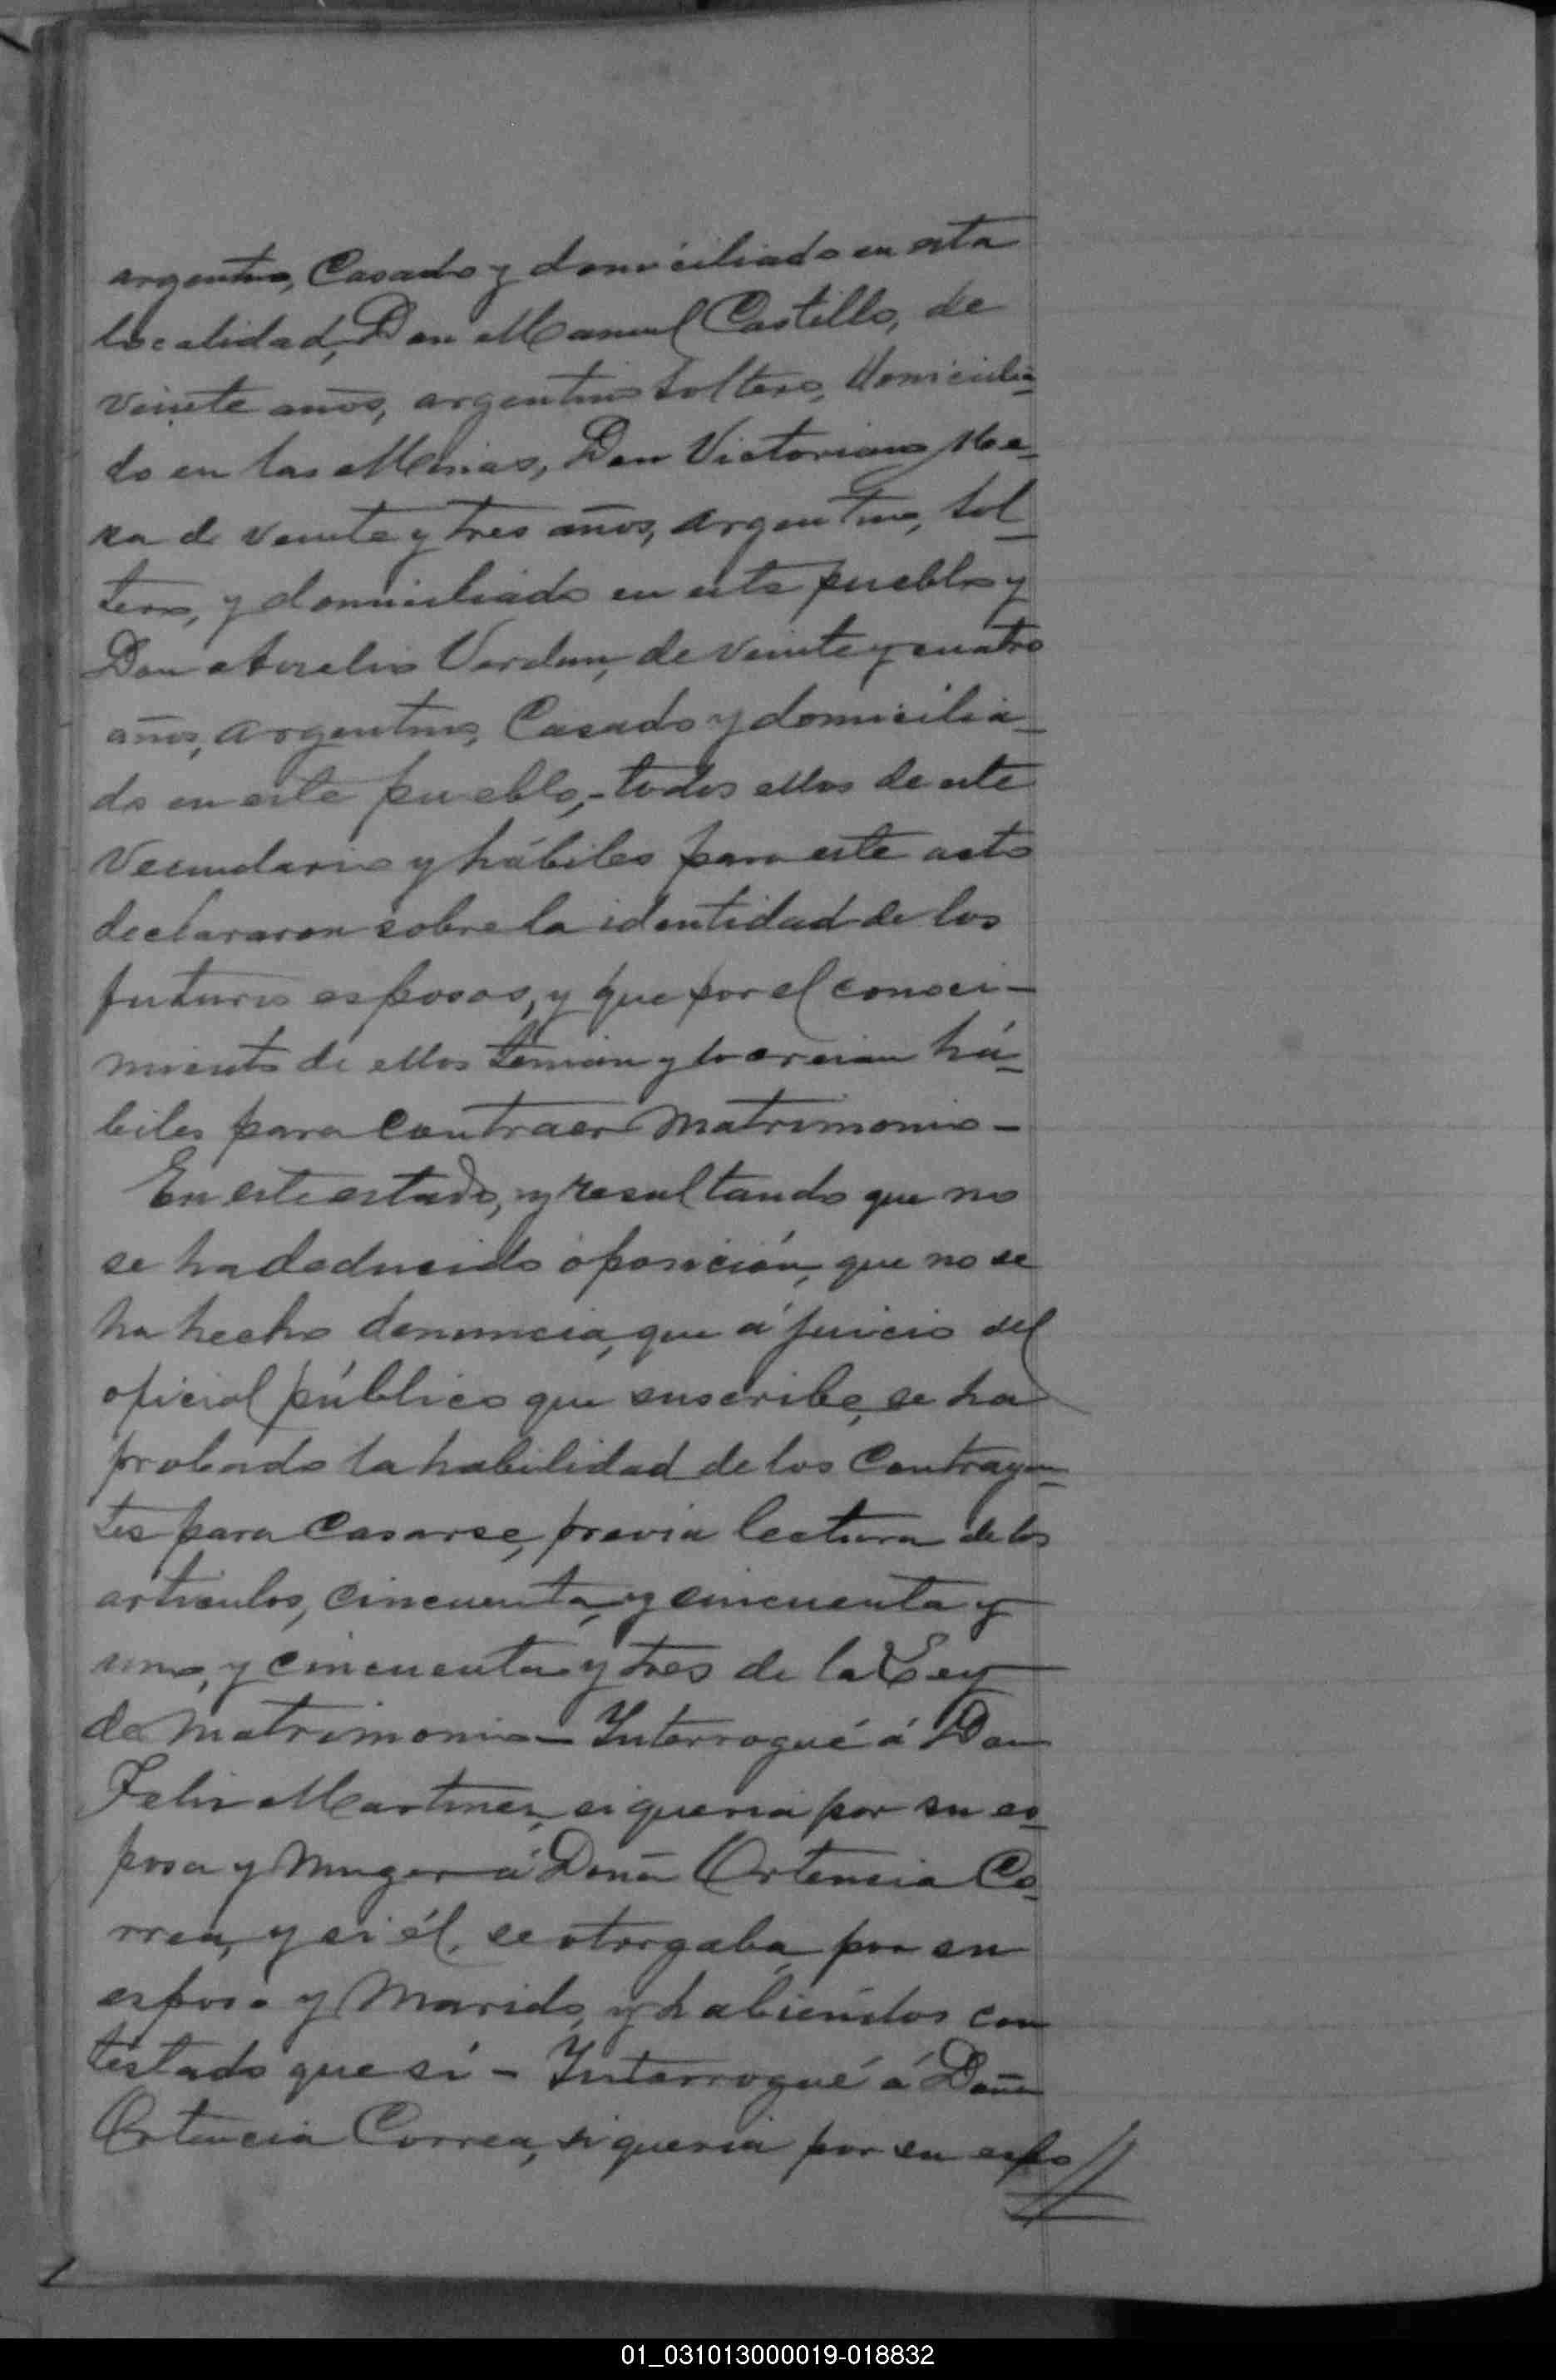 argentino, Casado y domiciliado en esta
localidad, Don Manuel Castillo, de
veinte años, argentino soltero, domicilia-
do en las Minas, Don Victoriano
ra de veinte y tres años, argentino, sol-
tero, y domiciliado en este pueblo y
Don Aurelio Verdun, de veinte y cuatro
años, argentino, Casado y domicilia-
do en este pueblo,- todos ellos de este
Vecindario y hábiles para este acto
declararon sobre la identidad de los
futuros esposos, y que por el conoci-
miento de ellos tenian y lo creian há-
biles para contraer Matrimonio -
En este estado, y resultando que no
se ha deducido oposición, que no se
ha hecho denuncia, que á juicio del
oficial público que suscribe, se ha
probado la habilidad de los Contrayen-
tes para Casarse, previa lectura de los
articulos, cincuenta, y cincuenta y
uno, y cincuenta y tres de la Ley
de Matrimonio - Interrogué á Don
Felix Martinez, si queria por su es-
posa y Muger á Doña Ortencia Co-
rrea, y si él, se otorgaba por su
esposo y Marido, y habiendos con
testado que si - Interrogué á Doña
Ortencia Correa, si queria por su espo
01_031013000019-018832